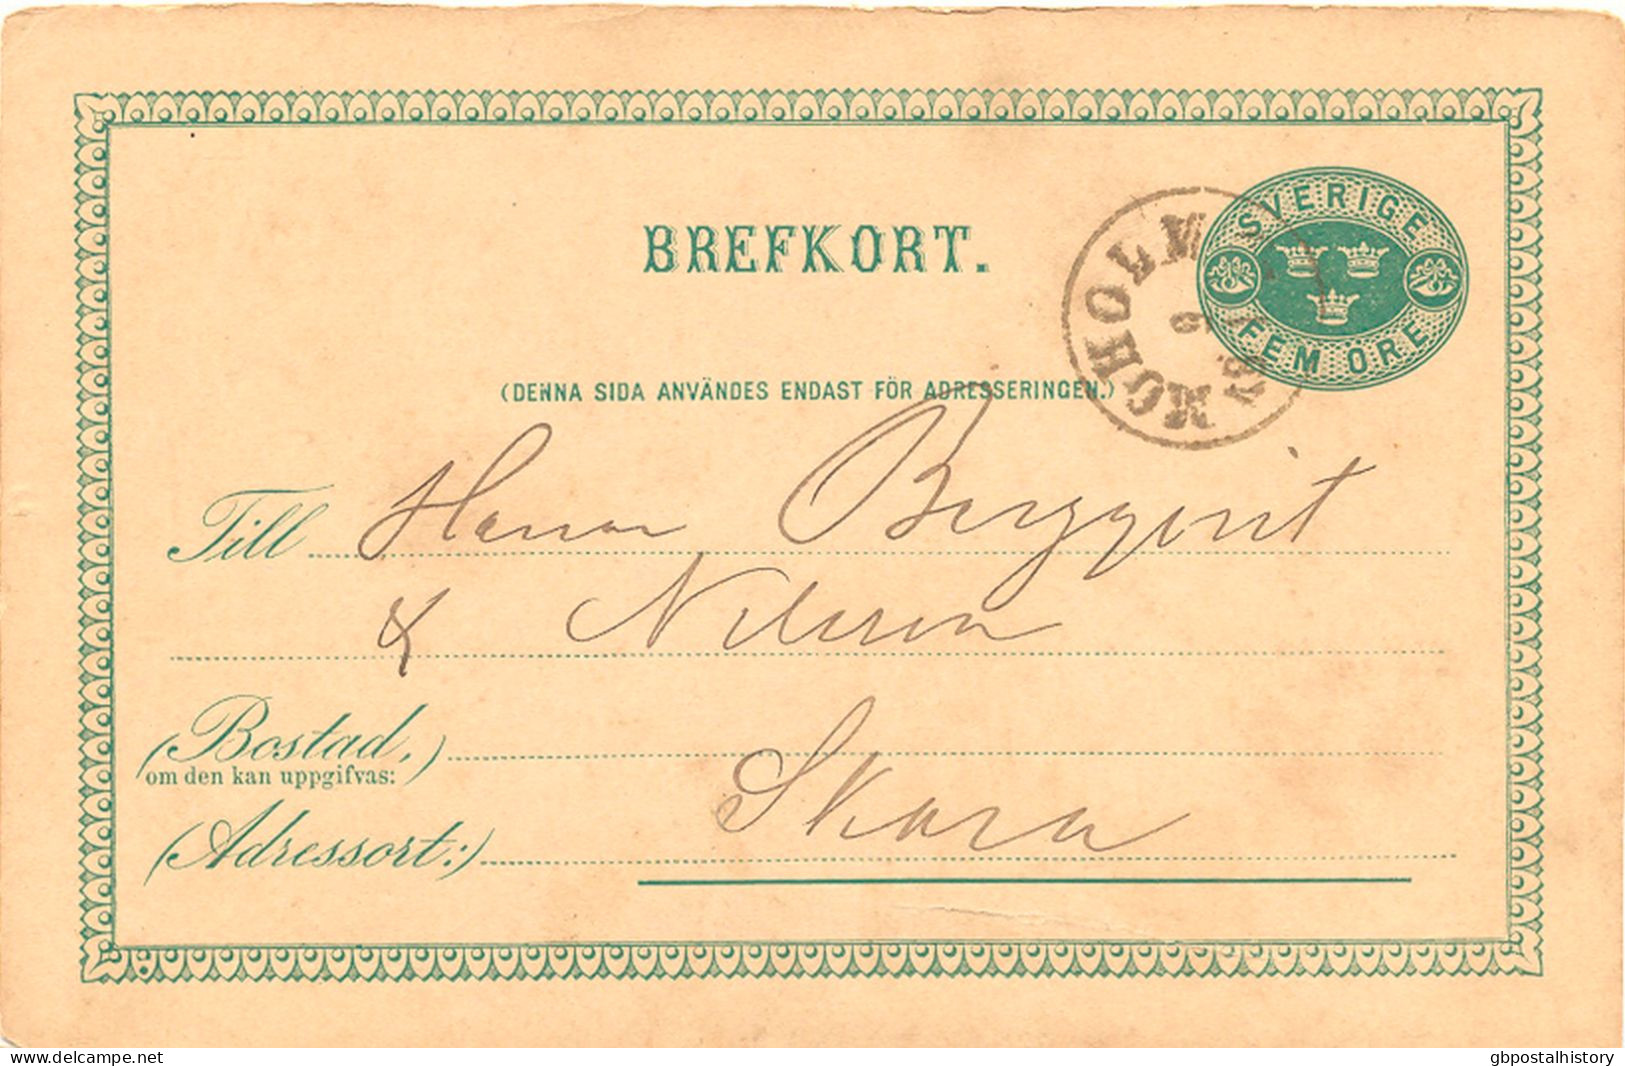 BREFKORT.
SVERIGE
FEM ÖRE
MOHOLM
(DENNA SIDA ANVÄNDES ENDAST FÖR ADRESSERINGEN.)
Till Herrar Bergqvist
& Nilsson
(Bostad,)
om den kan uppgifvas:
(Adressort:) Skara
delcampe.net
gbpostalhistory